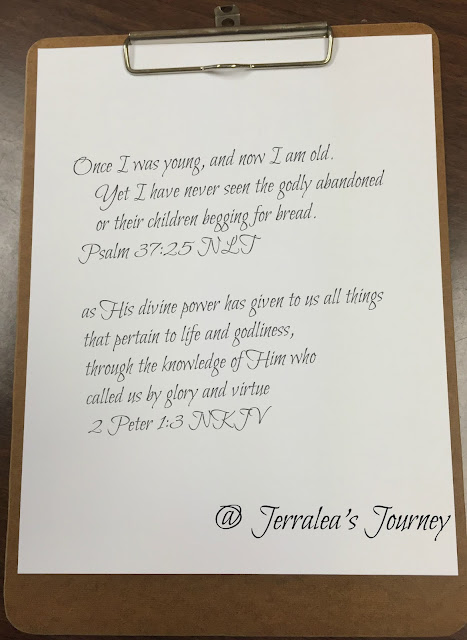 Once I was young, and now I am old.
Yet I have never seen the godly abandoned
or their children begging for bread.
Psalm 37:25 NLT
as His divine power has given to us all things
that pertain to life and godliness,
through the knowledge of Him who
called us by glory and virtue
2 Peter 1:3 NKJV
@ Jerralea's Journey